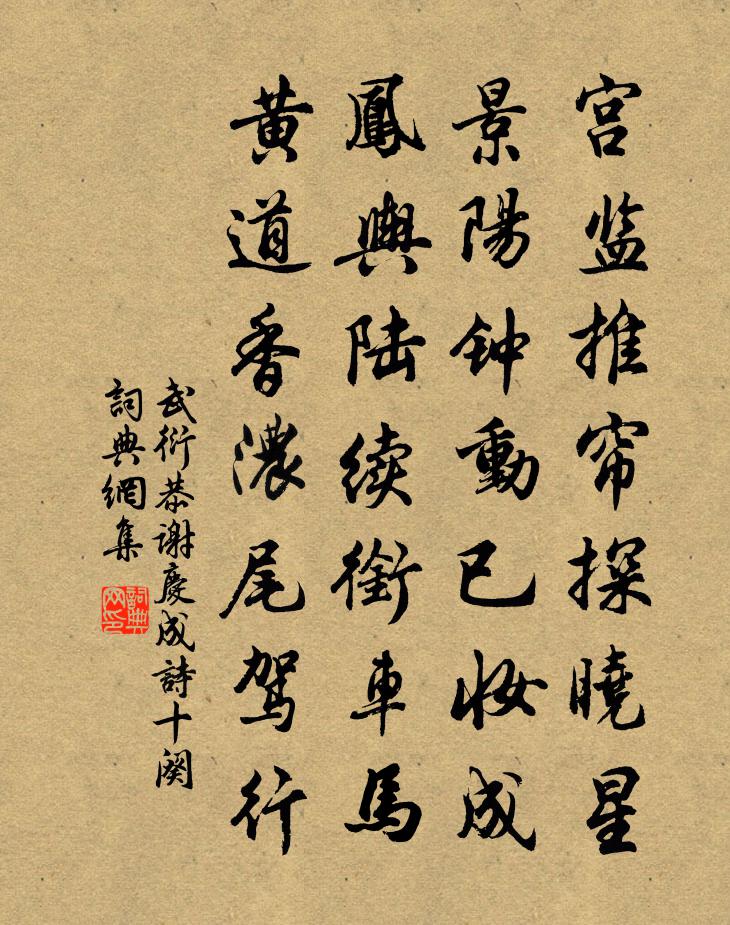 宫监推帘探曉星
景陽钟動已妆成
鳳輿陆续銜車馬
黄道香濃尾驾行
武衍恭谢慶成詩十阕
詞典網集
詞典网印